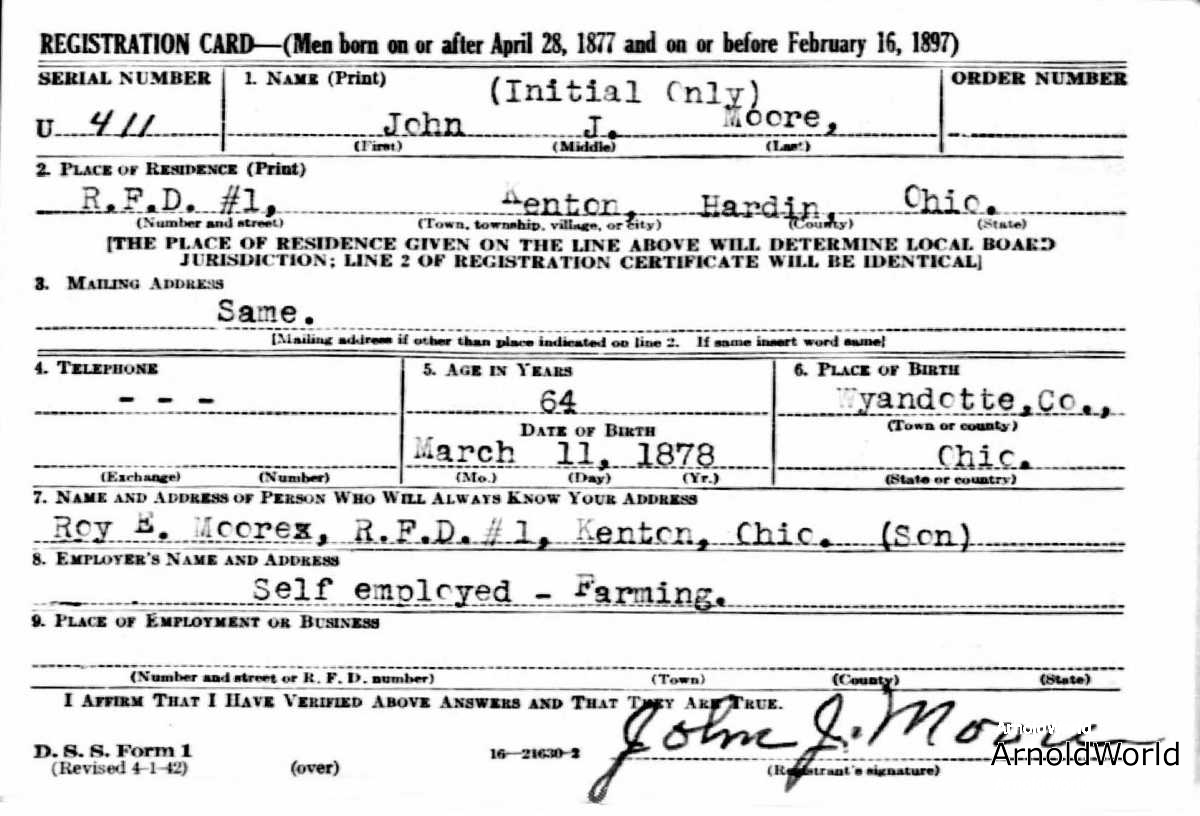 REGISTRATION CARD—(Men born on or after April 28, 1877 and on or before February 16, 1897)
SERIAL NUMBER 1. NAME (Print) ORDER NUMBER
(Initial Only)
U 411 John J. Moore,
(First) (Middle) (Last)
2. PLACE OF RESIDENCE (Print)
R.F.D. #1, Kenton, Hardin, Ohio.
(Number and street) (Town, township, village, or city) (County) (State)
[THE PLACE OF RESIDENCE GIVEN ON THE LINE ABOVE WILL DETERMINE LOCAL BOARD
JURISDICTION; LINE 2 OF REGISTRATION CERTIFICATE WILL BE IDENTICAL]
3. MAILING ADDRESS
Same.
[Mailing address if other than place indicated on line 2. If same insert word same]
4. TELEPHONE 5. AGE IN YEARS 6. PLACE OF BIRTH
- - - 64 Wyandotte,Co.,
DATE OF BIRTH (Town or county)
March 11, 1878 Ohio.
(Exchange) (Number) (Mo.) (Day) (Yr.) (State or country)
7. NAME AND ADDRESS OF PERSON WHO WILL ALWAYS KNOW YOUR ADDRESS
Roy E. Moorex, R.F.D. #1, Kenton, Ohio. (Son)
8. EMPLOYER'S NAME AND ADDRESS
Self employed - Farming.
9. PLACE OF EMPLOYMENT OR BUSINESS
(Number and street or R. F. D. number) (Town) (County) (State)
I AFFIRM THAT I HAVE VERIFIED ABOVE ANSWERS AND THAT THEY ARE TRUE.
John J. Moore
ArnoldWorld
D. S. S. Form 1 16—21630-2
ArnoldWorld
(Revised 4-1-42) (over) (Registrant's signature)